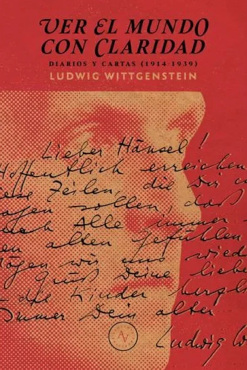 VER EL MUNDO
CON CLARIDAD
DIARIOS Y CARTAS (1914-1939)
LUDWIG WITTGENSTEIN
Lieber Hänsel!
Hoffentlich erreichen
se Zeilen, die Dir
sagen sollen, daß
ich Alle immer
en alten Gefühlen
mögen wir uns
Deine liebe
die Kinder
immer Dein alter
Ludwig W